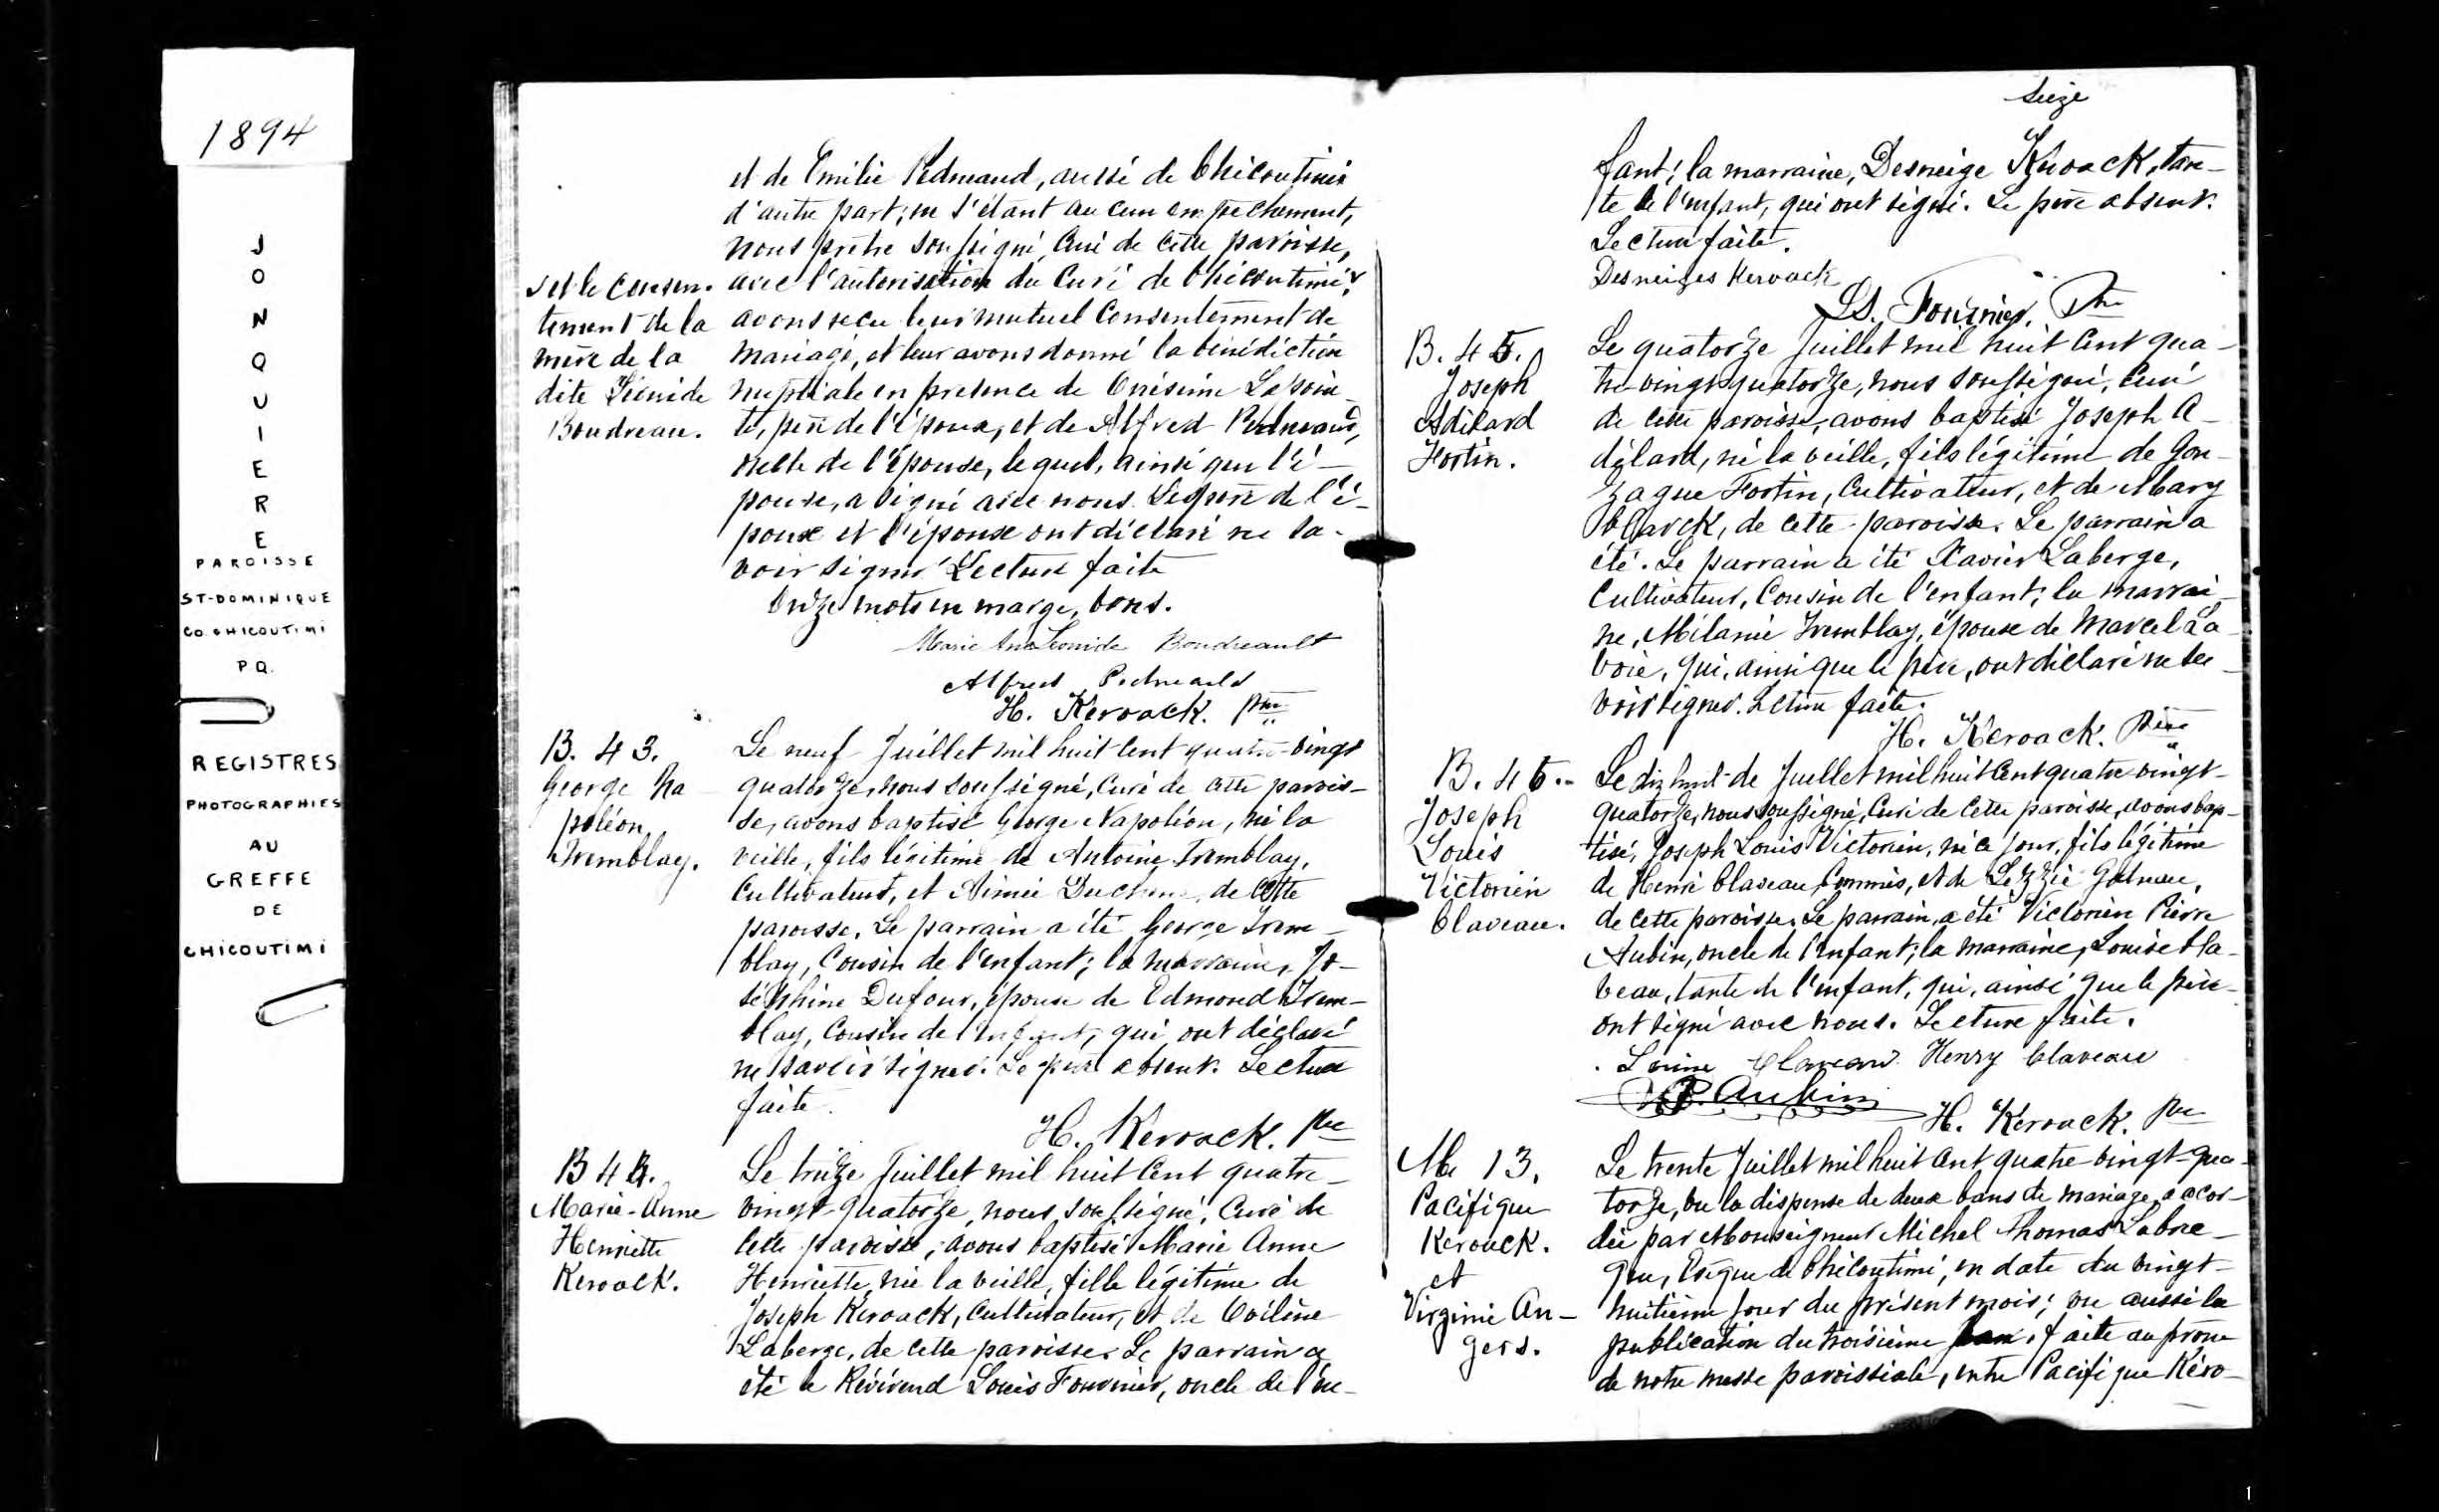 1894
JONQUIERE
PAROISSE
ST-DOMINIQUE
CO. CHICOUTIMI
P.Q.
REGISTRES
PHOTOGRAPHIES
AU
GREFFE
DE
CHICOUTIMI
et de Emilie Pedneaud, aussi de Chicoutimi
d'autre part; ne s'étant aucun empêchement,
nous prêtre soussigné, Curé de cette paroisse,
avec l'autorisation du Curé de Chicoutimi
avons recu leur mutuel Consentement de
mariage, et leur avons donné la bénédiction
nuptiale en présence de Onésime Lapoin-
te, père de l'époux, et de Alfred Pedneaud,
oncle de l'épouse, lequel, ainsi que l'é-
pouse, a signé avec nous. Le père de l'é-
poux et l'épouse ont déclaré ne sa-
voir signer. Lecture faite
Onze mots en marge, bons.
et le consen-
tement de la
mère de la
dite Léonide
Boudreau.
Marie Léonide Boudreault
Alfred Pedneauld
H. Kerouack. Ptre
B. 43.
George Na-
poléon
Tremblay.
Le neuf Juillet mil huit cent quatre-vingt
quatorze, nous soussigné, Curé de cette parois-
se, avons baptisé George Napoléon, né la
veille, fils légitime de Antoine Tremblay,
Cultivateur, et Aimée Duchene, de cette
paroisse. Le parrain a été George Trem-
blay, Cousin de l'enfant; la marraine, Jo-
séphine Dufour, épouse de Edmond Trem-
blay, Cousin de l'enfant, qui ont déclaré
ne savoir signer. Le père absent. Lecture
faite.
H. Kerouack. Ptre
B 44.
Marie-Anne
Henriette
Kerouack.
Le treize Juillet mil huit cent quatre-
vingt-quatorze, nous soussigné, Curé de
cette paroisse, avons baptisé Marie Anne
Henriette, née la veille, fille légitime de
Joseph Kerouack, Cultivateur, et de
Laberge, de cette paroisse. Le parrain a
été le Révérend Louis Fournier, oncle de l'en-
Seize
fant; la marraine, Desneige Kerouack, tan-
te de l'enfant, qui ont signé. Le père absent.
Lecture faite.
Desneiges Kerouack
Ls. Fournier. Ptre
B. 45.
Joseph
Adélard
Fortin.
Le quatorze Juillet mil huit cent qua-
tre-vingt-quatorze, nous soussigné, Curé
de cette paroisse, avons baptisé Joseph A-
délard, né la veille, fils légitime de Gon-
zague Fortin, Cultivateur, et de Mary
Clarck, de cette paroisse. Le parrain a
été. Le parrain a été Xavier Laberge,
Cultivateur, Cousin de l'enfant; la marrai-
ne, Mélanie Tremblay, épouse de Marcel La-
voie, qui, ainsi que le père, ont déclaré ne sa-
voir signer. Lecture faite.
H. Kerouack. Ptre
B. 46.
Joseph
Louis
Victorien
Claveau.
Le dix huit de Juillet mil huit cent quatre vingt-
quatorze, nous soussigné, Curé de cette paroisse, avons bap-
tisé, Joseph Louis Victorien, né ce jour, fils légitime
de Henri Claveau, Commis, et de Lezzie
de cette paroisse. Le parrain a été Victorien Pierre
Aubin, oncle de l'enfant; la marraine, Louise Cla-
veau, tante de l'enfant, qui, ainsi que le père
ont signé avec nous. Lecture faite.
Louise Claveau Henry Claveau
V.P. Aubin
H. Kerouack. Ptre
M. 13.
Pacifique
Kerouack.
et
Virginie An-
gers.
Le trente Juillet mil huit cent quatre-vingt-qua-
torze, vu la dispense de deux bans de mariage, accor-
dée par Monseigneur Michel Thomas Labrec-
que, Evêque de Chicoutimi, en date du vingt-
huitième jour du présent mois; vu aussi la
publication du troisième ban, faite au prône
de notre messe paroissiale, entre Pacifique Kéro-